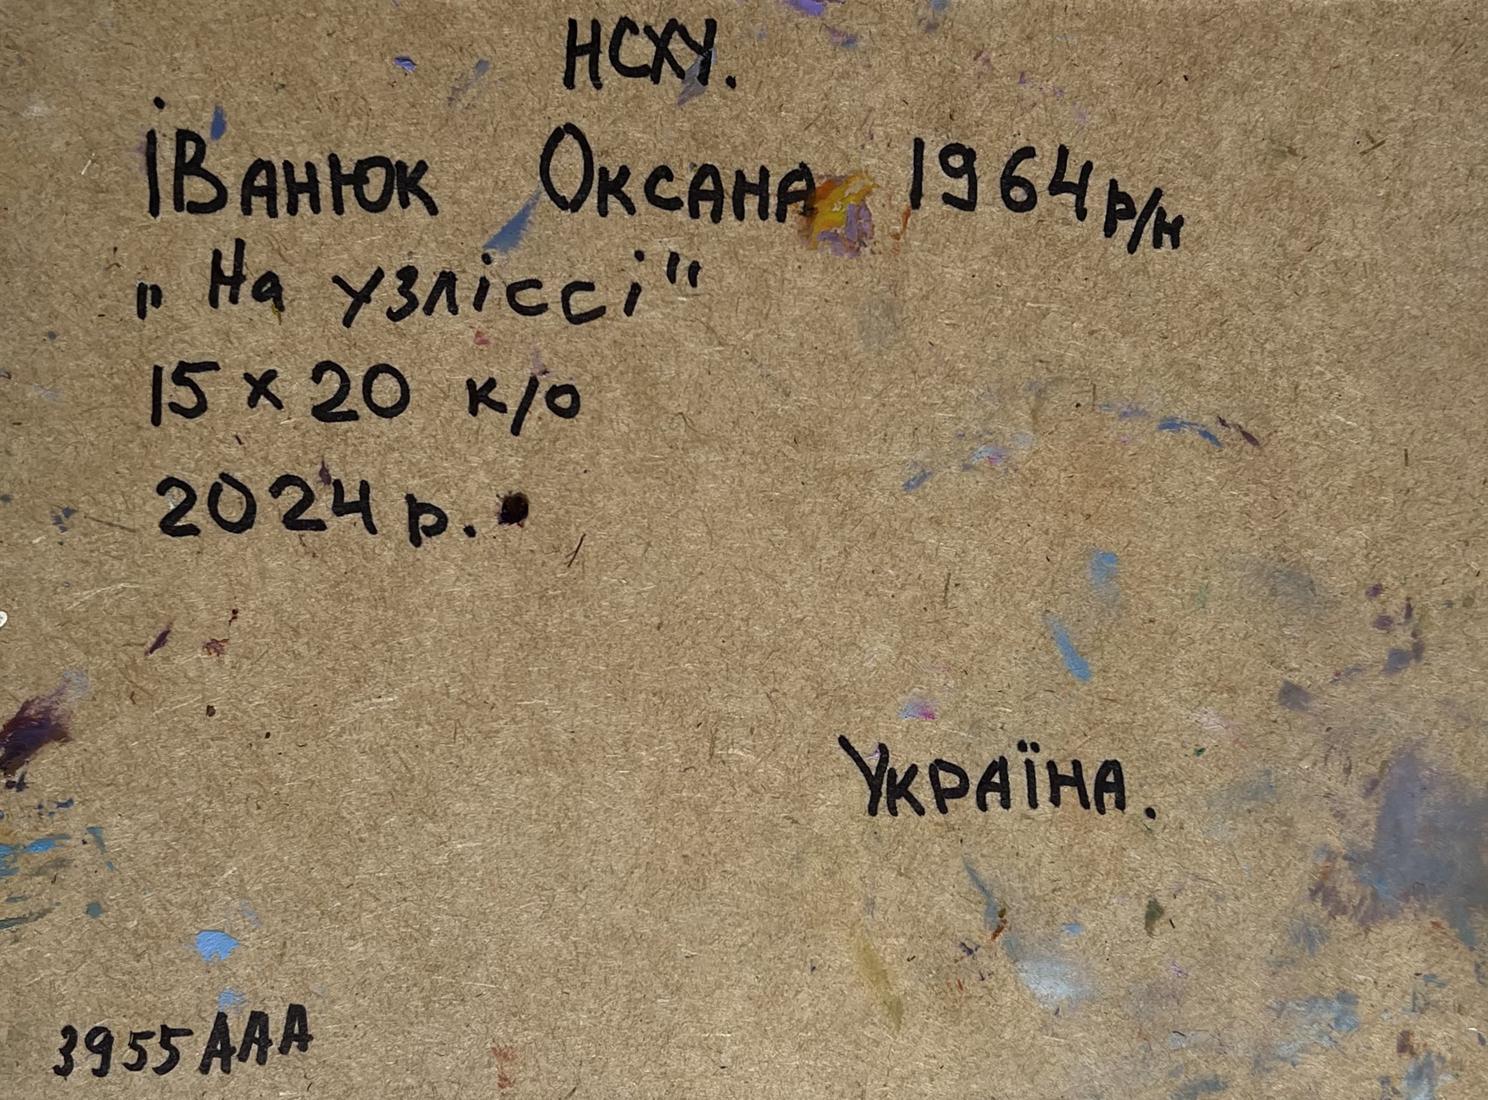 НСХУ.
Іванюк Оксана 1964 р/н
„На узліссі"
15 х 20 к/о
2024 р.
Україна.
3955ААА